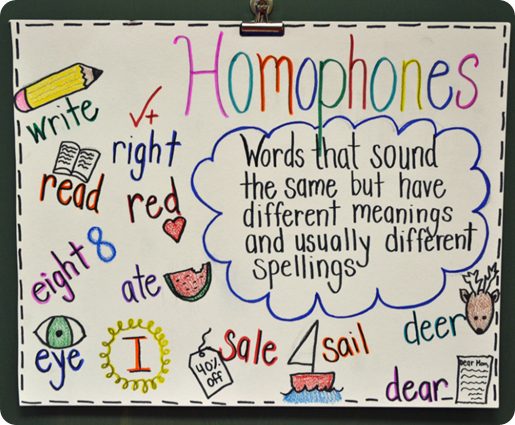 Homophones
Words that sound
the same but have
different meanings
and usually different
spellings
write
right
read
red
eight 8
ate
eye
I
40%
off
sale
sail
deer
dear
Dear Mom,